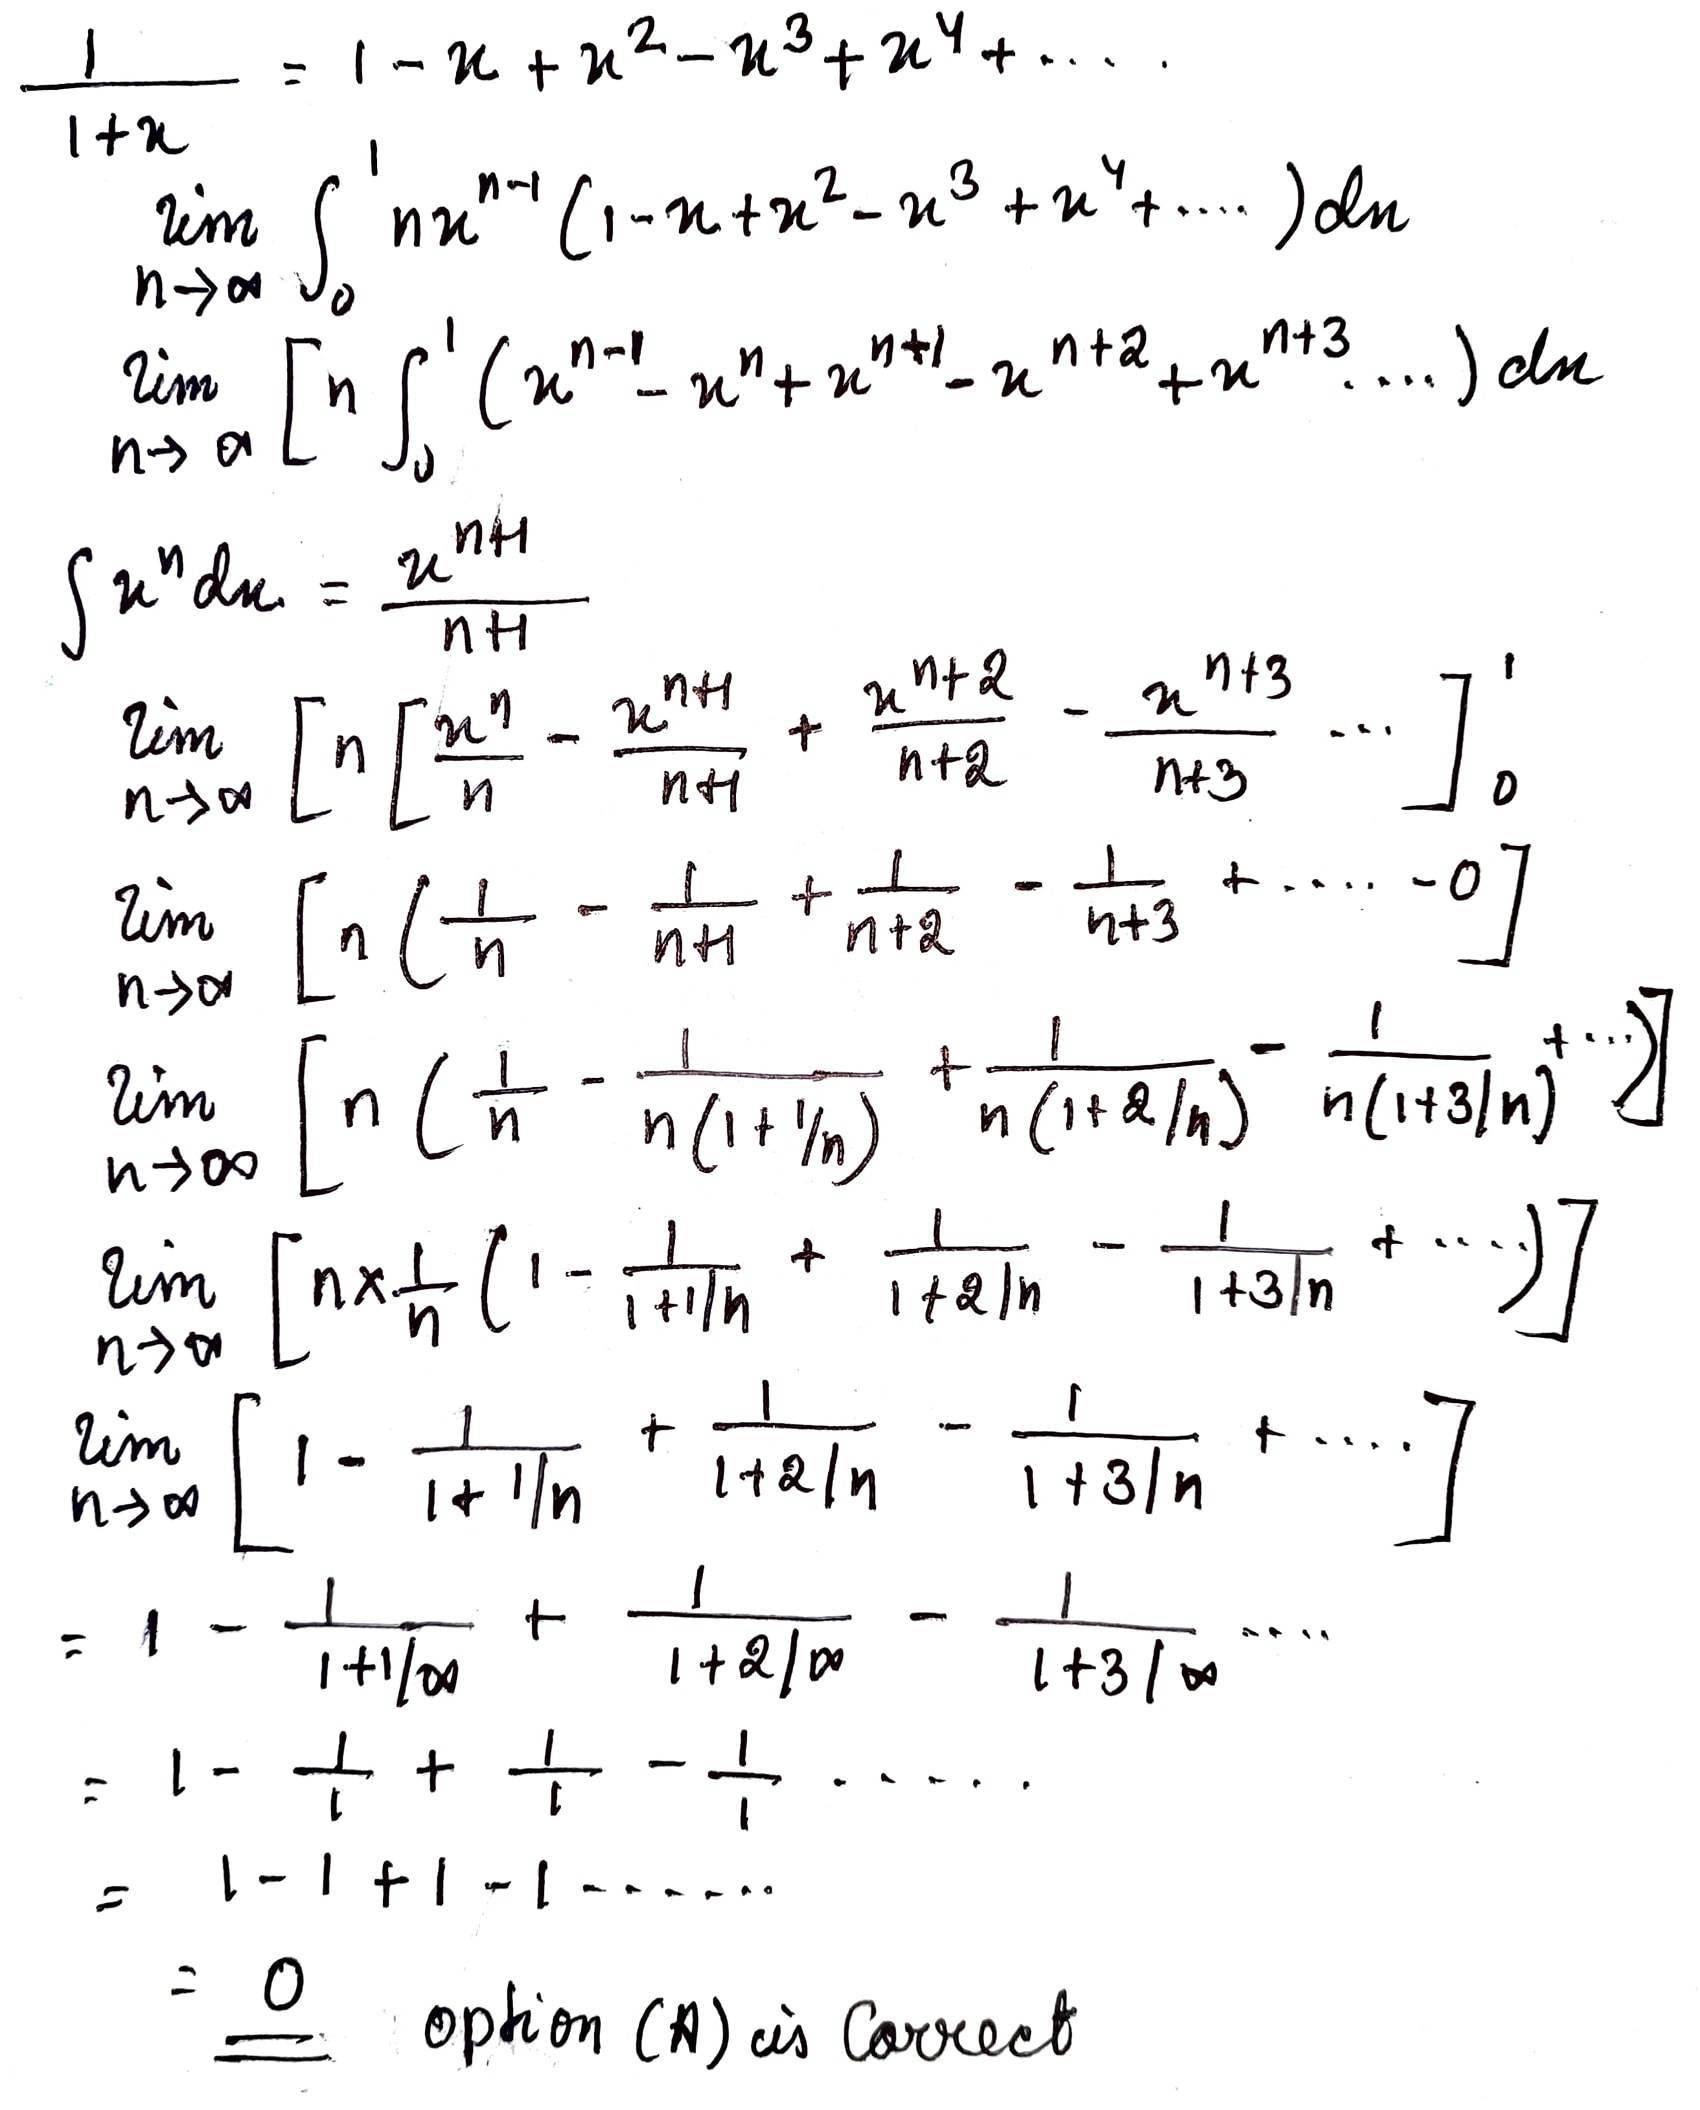 1/(1+x) = 1 - x + x² - x³ + x⁴ + .....
lim n→∞ ∫₀¹ nxⁿ⁻¹ (1 - x + x² - x³ + x⁴ + .....) dx
lim n→∞ [n ∫₀¹ (xⁿ⁻¹ - xⁿ + xⁿ⁺¹ - xⁿ⁺² + xⁿ⁺³ .....) dx
∫ xⁿ dx = xⁿ⁺¹/(n+1)
lim n→∞ [n [xⁿ/n - xⁿ⁺¹/(n+1) + xⁿ⁺²/(n+2) - xⁿ⁺³/(n+3) ...]₀¹
lim n→∞ [n (1/n - 1/(n+1) + 1/(n+2) - 1/(n+3) + ..... - 0]
lim n→∞ [n (1/n - 1/(n(1+1/n)) + 1/(n(1+2/n)) - 1/(n(1+3/n)) + ...)]
lim n→∞ [n × 1/n (1 - 1/(1+1/n) + 1/(1+2/n) - 1/(1+3/n) + .....)]
lim n→∞ [1 - 1/(1+1/n) + 1/(1+2/n) - 1/(1+3/n) + ....]
= 1 - 1/(1+1/∞) + 1/(1+2/∞) - 1/(1+3/∞) ....
= 1 - 1/1 + 1/1 - 1/1 ......
= 1 - 1 + 1 - 1 ......
= 0 option (A) is Correct